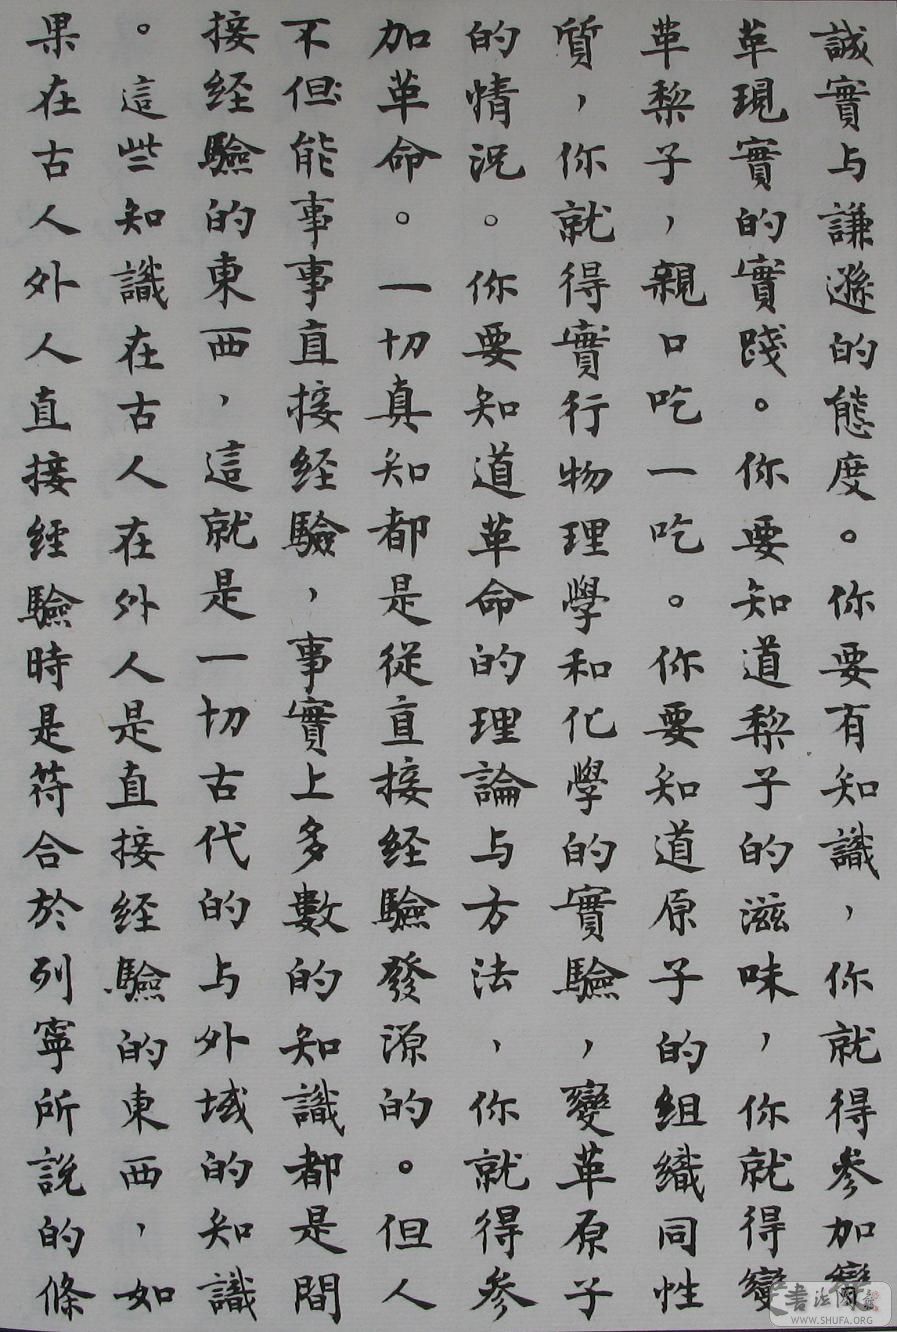 誠實与謙遜的態度。你要有知識，你就得參加變
革現實的實踐。你要知道梨子的滋味，你就得變
革梨子，親口吃一吃。你要知道原子的組織同性
質，你就得實行物理學和化學的實驗，變革原子
的情況。你要知道革命的理論与方法，你就得參
加革命。一切真知都是從直接経驗發源的。但人
不但能事事直接経驗，事實上多數的知識都是間
接経驗的東西，這就是一切古代的与外域的知識
。這些知識在古人在外人是直接経驗的東西，如
果在古人外人直接經驗時是符合於列寧所説的條
書法网
WWW.SHUFA.ORG